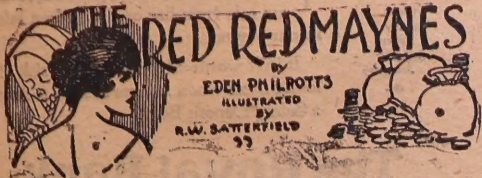 THE RED REDMAYNES
BY
EDEN PHILPOTTS
ILLUSTRATED
BY
R.W. SATTERFIELD